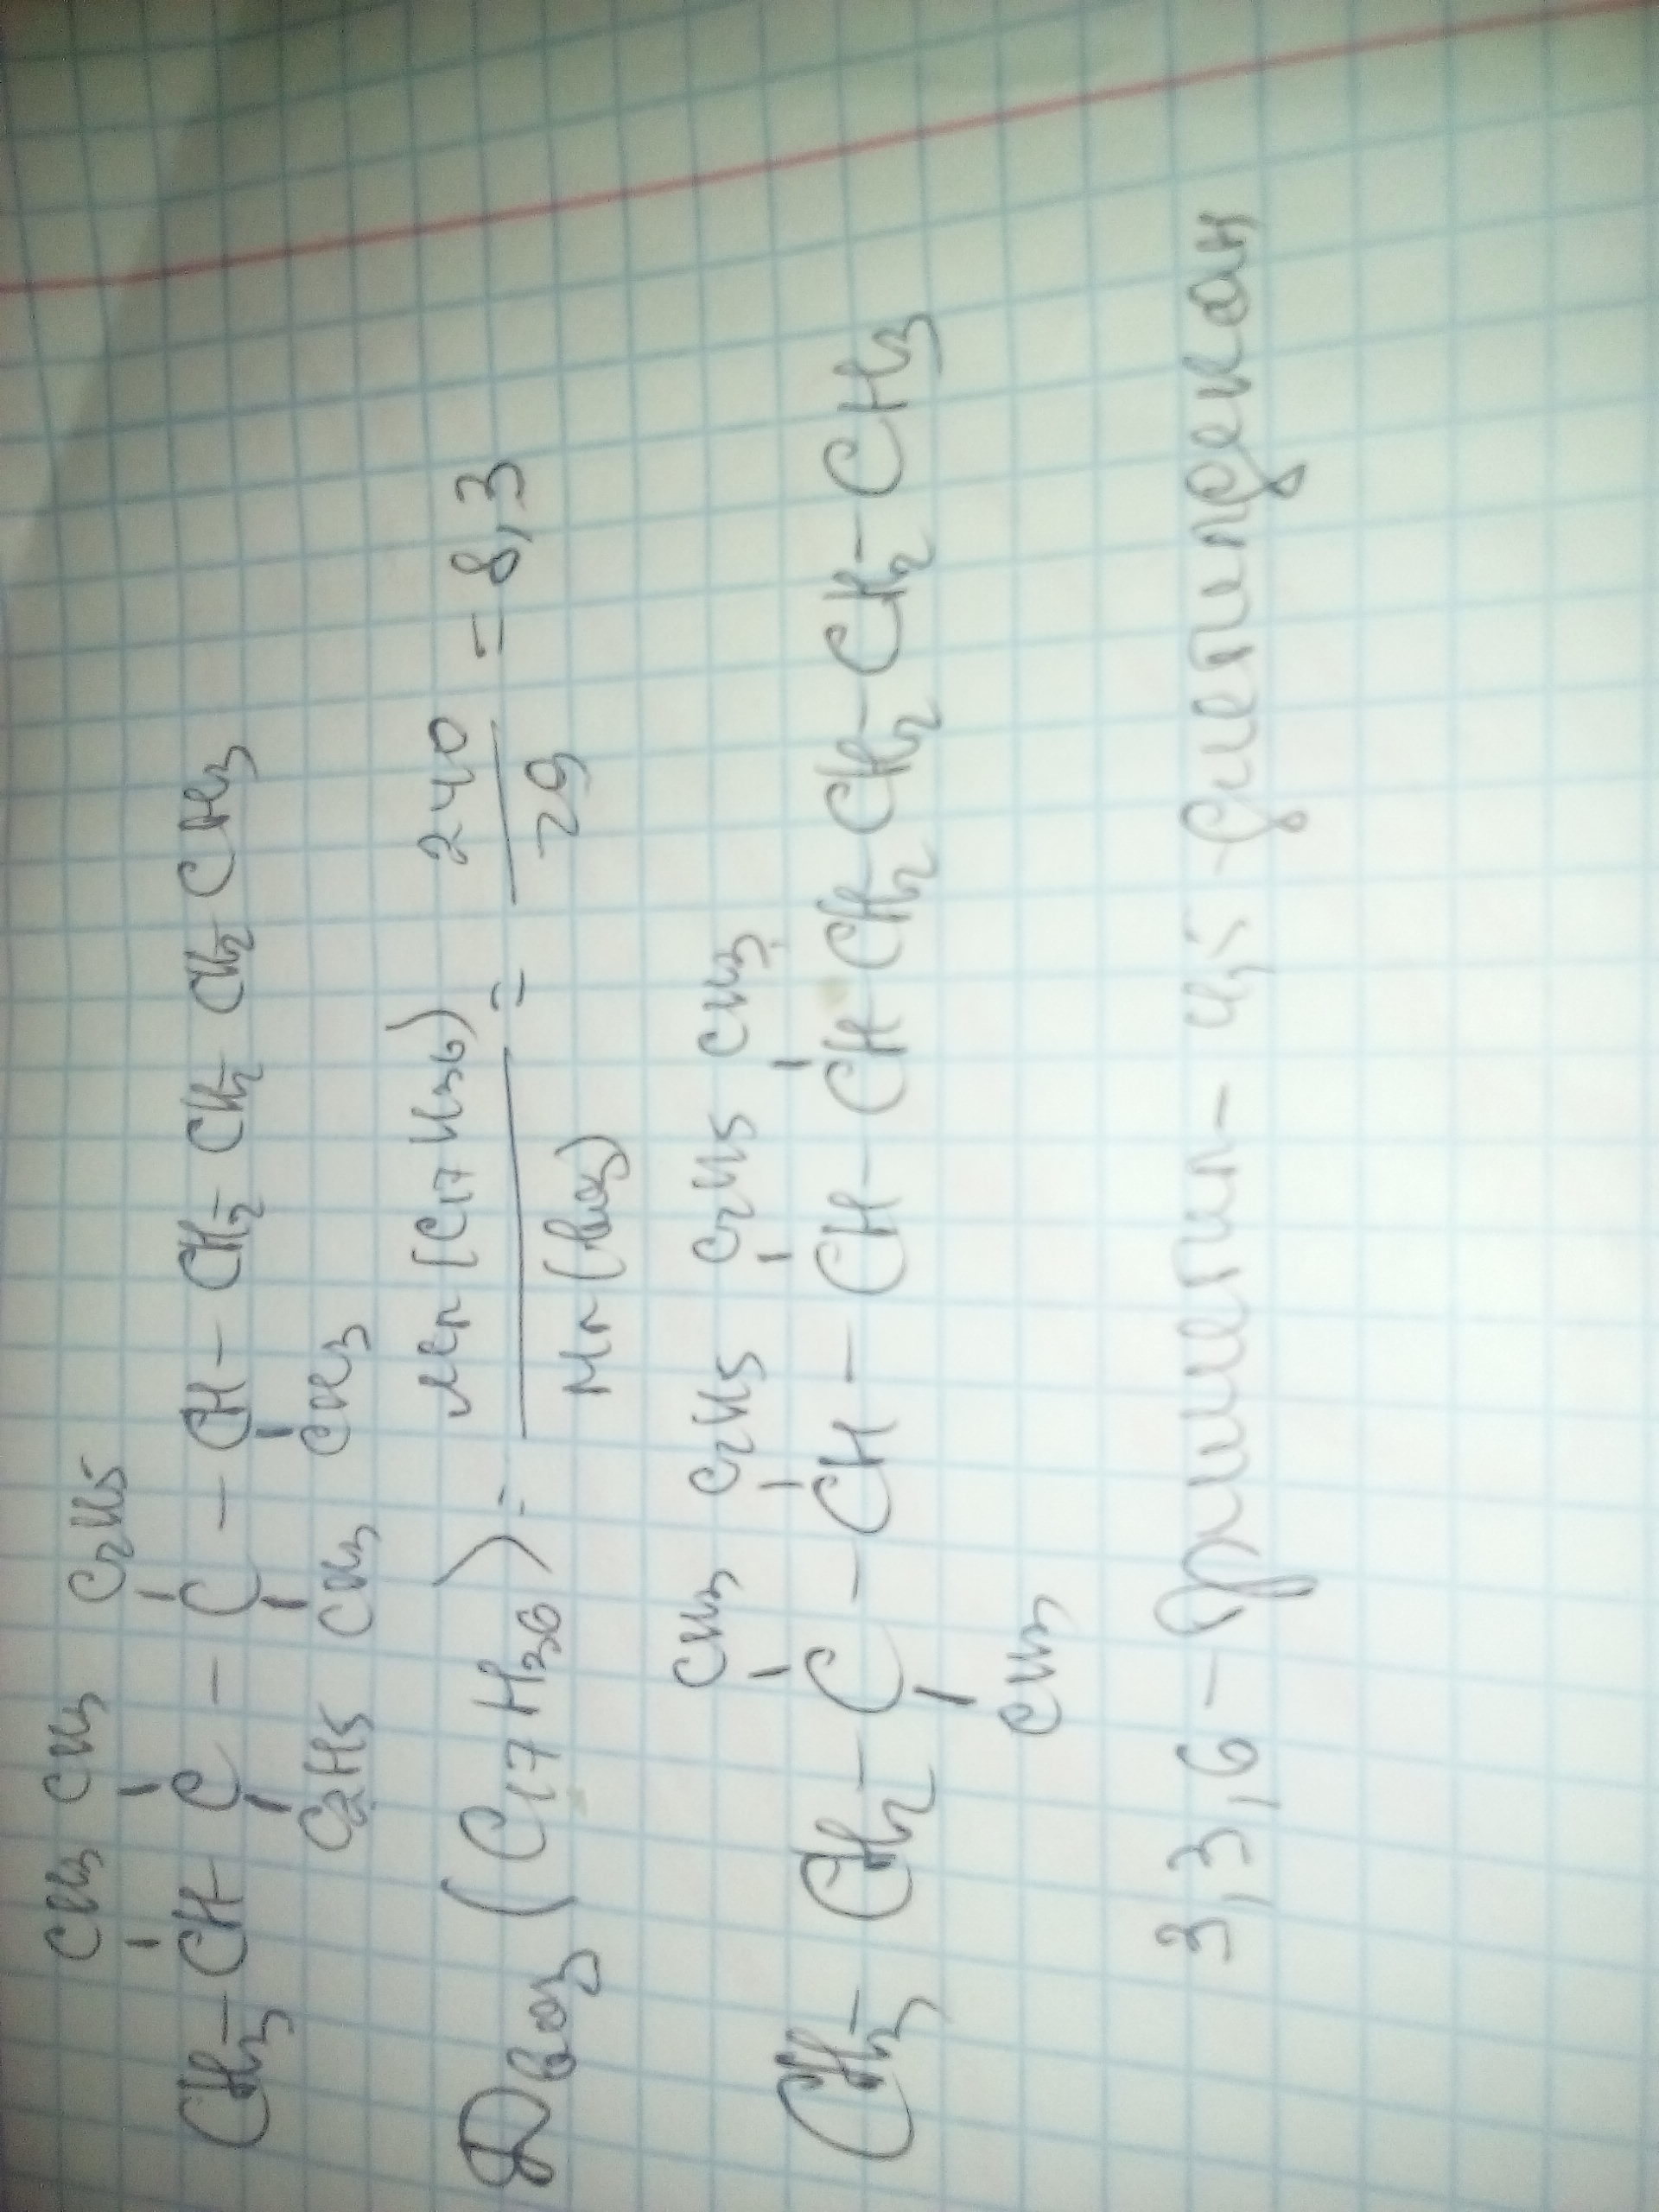 CH3 CH3 C2H5
CH3-CH-C-C-CH-CH2-CH2-CH2-CH3
C2H5 CH3 CH3
Dвоз (C17H36) = Mr(C17H36) / Mr(воз) = 240 / 29 = 8,3
CH3 C2H5 C2H5 CH3
CH3-CH2-C-CH-CH-CH-CH2-CH2-CH2-CH3
CH3
3,3,6-триметил-4,5-диетилдекан